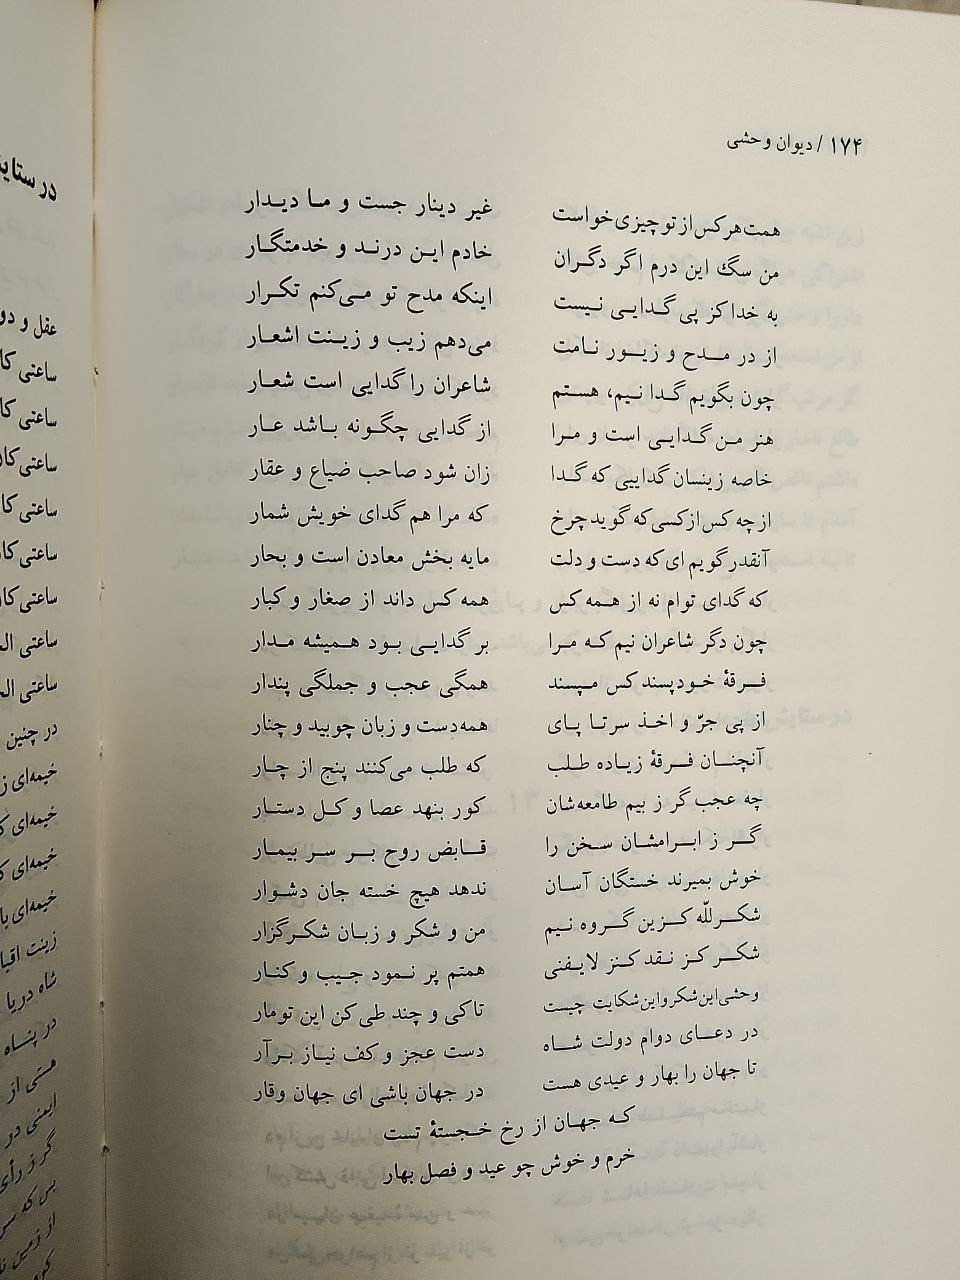 ۱۷۴ / دیوان وحشی
همت هر کس از تو چیزی خواست غیر دینار جست و ما دیدار
من سگ این درم اگر دگران خادم این درند و خدمتگار
به خدا کز پی گدایی نیست اینکه مدح تو می‌کنم تکرار
از در مدح و زیور نامت می‌دهم زیب و زینت اشعار
چون بگویم گدا نیم، هستم شاعران را گدایی است شعار
هنر من گدایی است و مرا از گدایی چگونه باشد عار
خاصه زینسان گدایی که گدا زان شود صاحب ضیاع و عقار
از چه کس از کسی که گوید چرخ که مرا هم گدای خویش شمار
آنقدر گویم ای که دست و دلت مایه بخش معادن است و بحار
که گدای توام نه از همه کس همه کس داند از صغار و کبار
چون دگر شاعران نیم که مرا بر گدایی بود همیشه مدار
فرقهٔ خودپسند کس مپسند همگی عجب و جملگی پندار
از پی جرّ و اخذ سر تا پای همه دست و زبان چو بید و چنار
آنچنان فرقهٔ زیاده طلب که طلب می‌کنند پنج از چار
چه عجب گر ز بیم طامعه‌شان کور بنهد عصا و کل دستار
گر ز ابرامشان سخن را قابض روح بر سر بیمار
خوش بمیرند خستگان آسان ندهد هیچ خسته جان دشوار
شکرللّه کزین گروه نیم من و شکر و زبان شکرگزار
شکر کز نقد کنز لایفنی همتم پر نمود جیب و کنار
وحشی این شکر و این شکایت چیست تا کی و چند طی کن این تومار
در دعای دوام دولت شاه دست عجز و کف نیاز برآر
تا جهان را بهار و عیدی هست در جهان باشی ای جهان وقار
که جهان از رخ خجستهٔ تست
خرم و خوش چو عید و فصل بهار
در ستا
عقل و دو
ساعتی کا
ساعتی کا
ساعتی کا
ساعتی کا
ساعتی کا
ساعتی کا
ساعتی ال
ساعتی ال
در چنین
خیمه‌ای ز
خیمه‌ای ک
خیمه‌ای ک
خیمه‌ای با
زینت اقبا
شاه دریا
در پناه
هستی از
ایمنی در
گر ز رأی
بس که سر
از زمین تا